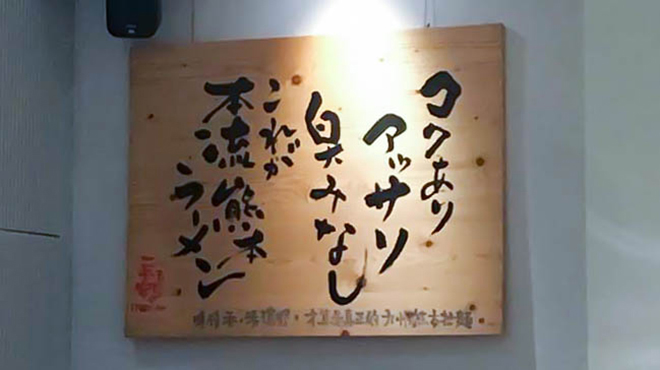 コクあり
アッサリ
臭みなし
これが
本流熊本
ラーメン